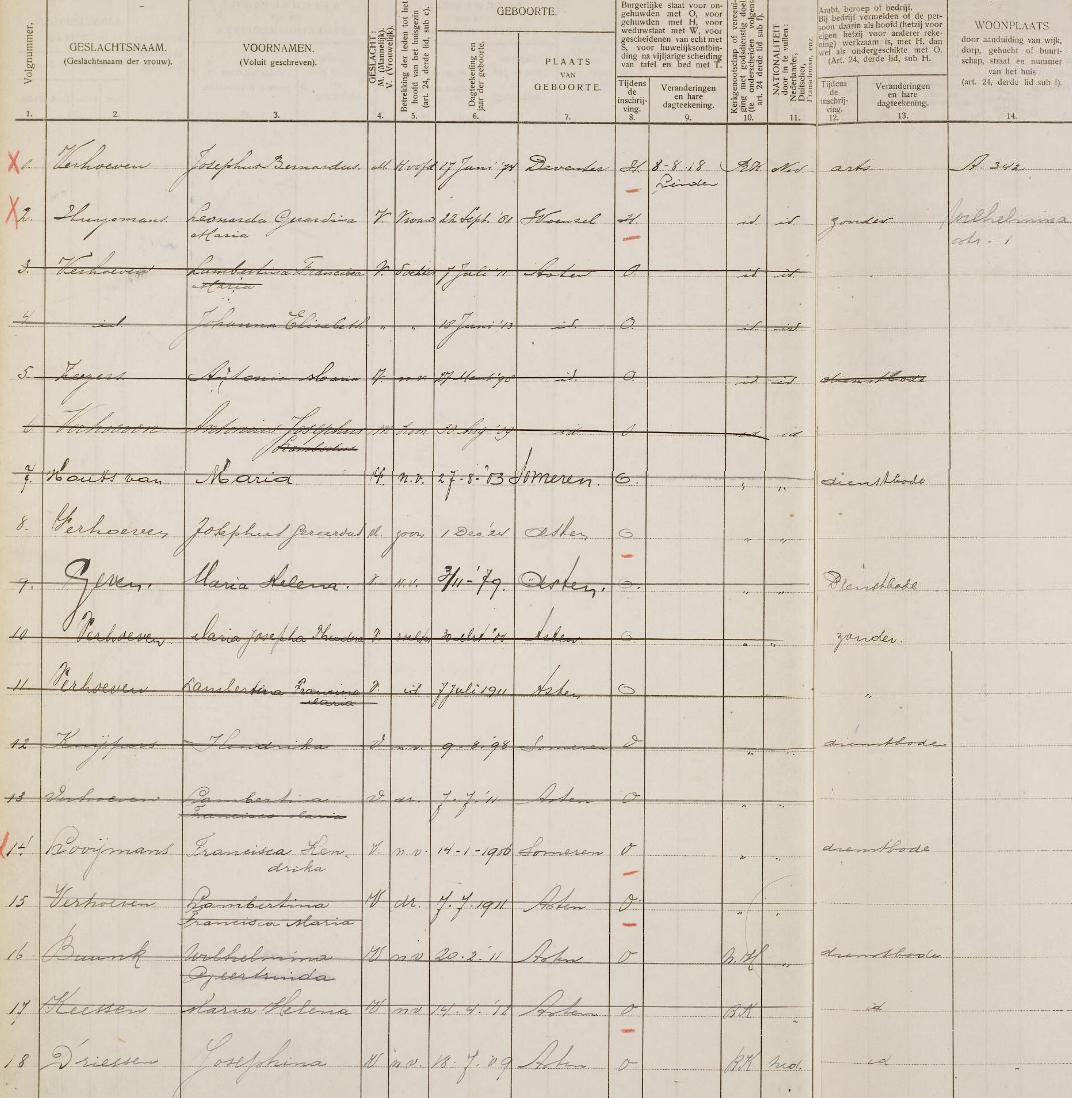 Volgnummer.
GESLACHTSNAAM.
(Geslachtsnaam der vrouw).
VOORNAMEN.
(Voluit geschreven).
GESLACHT:
M. (Mannelijk).
V. (Vrouwelijk).
Betrekking der leden tot het
hoofd van het huisgezin
(art. 24, derde lid, sub c).
GEBOORTE.
Dagteekening en
jaar der geboorte.
PLAATS
VAN
GEBOORTE.
Burgerlijke staat voor on-
gehuwden met O, voor
gehuwden met H, voor
weduwstaat met W, voor
gescheidenen van echt met
S, voor huwelijksontbin-
ding na vijfjarige scheiding
van tafel en bed met T.
Tijdens
de
inschrij-
ving.
Veranderingen
en hare
dagteekening.
Kerkgenootschap of vereeni-
ging met godsdienstig doel
(te onderscheiden volgens
art. 24 derde lid sub f).
NATIONALITEIT
door in te vullen:
Nederlander,
Duitscher,
Franschman, enz.
Ambt, beroep of bedrijf.
Bij bedrijf vermelden of de per-
soon daarin als hoofd (hetzij voor
eigen hetzij voor anderer reke-
ning) werkzaam is, met H. dan
wel als ondergeschikte met O.
(Art. 24, derde lid, sub H.
Tijdens
de
inschrij-
ving.
Veranderingen
en hare
dagteekening.
WOONPLAATS
door aanduiding van wijk,
dorp, gehucht of buurt-
schap, straat en nummer
van het huis
(art. 24, derde lid sub i).
1. 2. 3. 4. 5. 6. 7. 8. 9. 10. 11. 12. 13. 14.
1. Verhoeven Josephus Bernardus M. Hoofd 17 Juni '74 Deventer H. 8-8-18 RK Ned arts A. 342
2. Leonarda Gerardina V. Vrouw 22 Sept. '81 Woensel H id id zonder Wilhelmina
Maria str. 1
3. Verhoeven Lambertina Francisca V. dochter 7 Juli '11 Asten O. id id
Maria
4 id Johanna Elisabeth " " 18 Juni '13 id. O. id id
5. Maria V. n.v. id. O id id dienstbode
6 Verhoeven Antonius Josephus M zoon id O id id
Lambertus
7. Maria V. n.v. 27-8-'03 Someren. O. " " dienstbode
8. Verhoeven Josephus Gerardus M. zoon 1 Dec '24 Asten O " "
9. Geven. Maria Helena. V n.v. 3/11-'79. Asten. O. " " Dienstbode
10 Verhoeven Maria Josepha Theodora V Asten O " " zonder.
11 Verhoeven Lambertina Francisca V id 7 Juli 1911 Asten O "
Maria
12 Knijppers Hendrika V n.v. 9-8-'98 Someren O " " dienstbode
13 Verhoeven Lambertina V dr. 7-7-'11 Asten O " "
Francisca Maria
14 Rooijmans Francisca Hen- V. n.v. 14-1-1906 Someren O " " dienstbode
drika
15 Verhoeven Lambertina V dr. 7.7.1911 Asten O " "
Francisca Maria
16 Wilhelmina V nv 20-2-'11 Asten O N.H " dienstbode
Geertruida
17 Keessen Maria Helena V nv Asten O RK id
18 Driessen Josephina V n.v. 18-7-'09 Asten O RK Ned. id